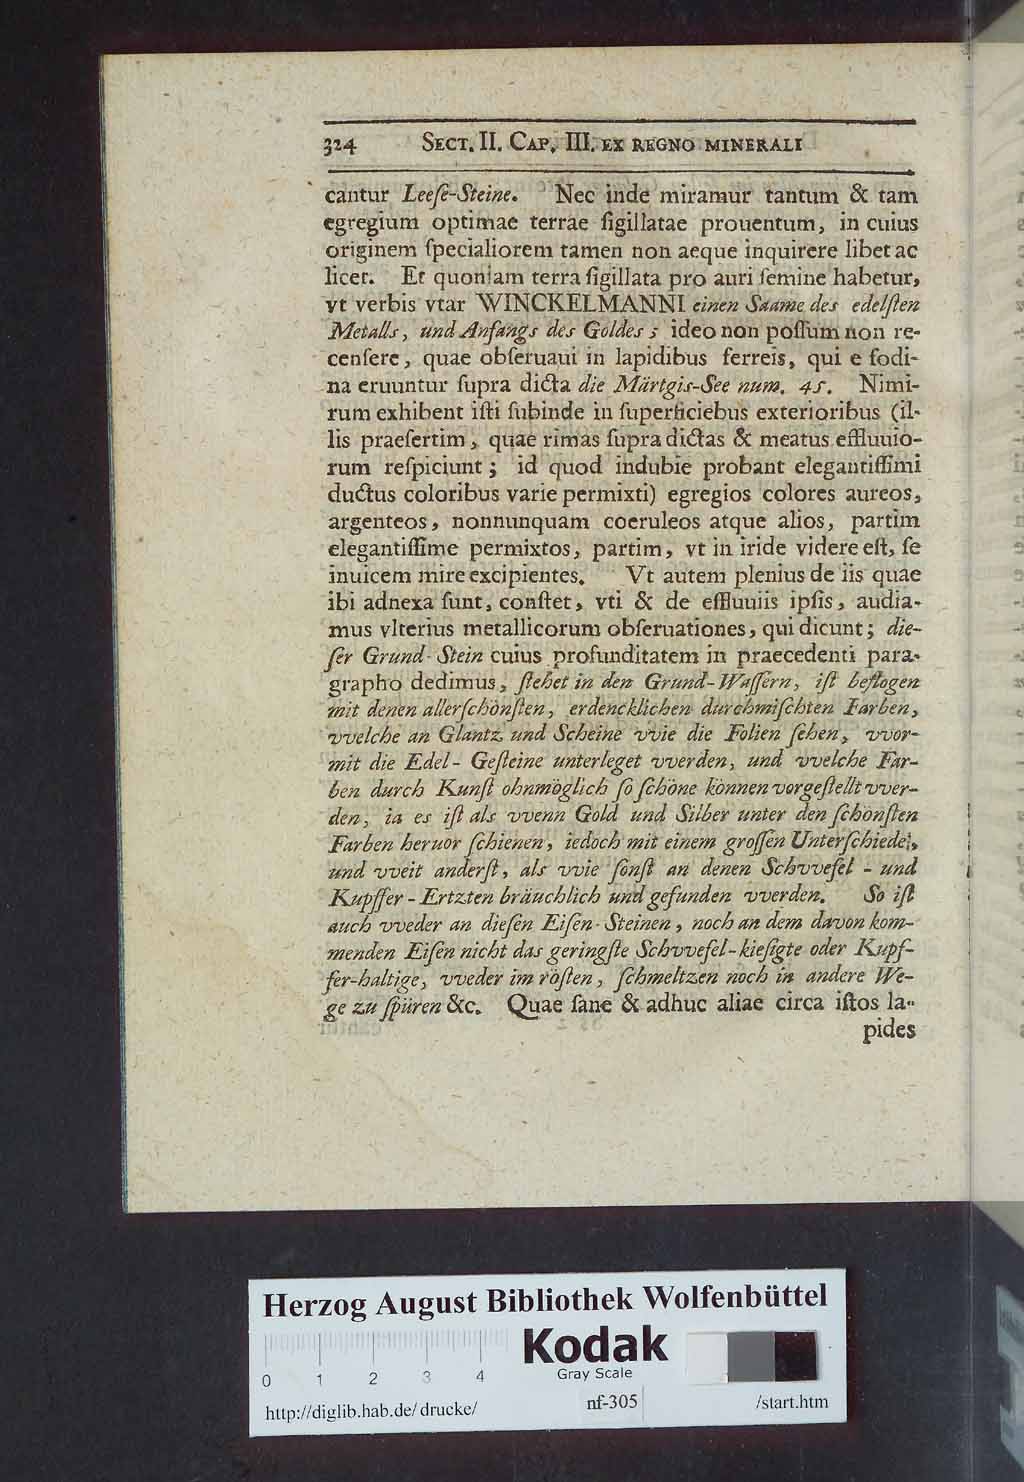 324 SECT. II. CAP. III. EX REGNO MINERALI
cantur Leeſe-Steine. Nec inde miramur tantum & tam
egregium optimae terrae ſigillatae prouentum, in cuius
originem ſpecialiorem tamen non aeque inquirere libet ac
licet. Et quoniam terra ſigillata pro auri ſemine habetur,
vt verbis vtar WINCKELMANNI einen Saame des edelſten
Metalls, und Anfangs des Goldes; ideo non poſſum non re-
cenſere, quae obſeruaui in lapidibus ferreis, qui e fodi-
na eruuntur ſupra dicta die Märtgis-See num. 45. Nimi-
rum exhibent iſti ſubinde in ſuperficiebus exterioribus (il-
lis praeſertim, quae rimas ſupra dictas & meatus effluuio-
rum reſpiciunt; id quod indubie probant elegantiſſimi
ductus coloribus varie permixti) egregios colores aureos,
argenteos, nonnunquam coeruleos atque alios, partim
elegantiſſime permixtos, partim, vt in iride videre eſt, ſe
inuicem mire excipientes. Vt autem plenius de iis quae
ibi adnexa ſunt, conſtet, vti & de effluuiis ipſis, audia-
mus vlterius metallicorum obſeruationes, qui dicunt; die-
ſer Grund-Stein cuius profunditatem in praecedenti para-
grapho dedimus, ſtehet in den Grund-Waſſern, iſt beflogen
mit denen allerſchönſten, erdencklichen durchmiſchten Farben,
vvelche an Glantz und Scheine vvie die Folien ſehen, vvor-
mit die Edel-Geſteine unterleget vverden, und vvelche Far-
ben durch Kunſt ohnmöglich ſo ſchöne können vorgeſtellt vver-
den, ia es iſt als vvenn Gold und Silber unter den ſchönſten
Farben heruor ſchienen, iedoch mit einem groſſen Unterſchiede,
und vveit anderſt, als vvie ſonſt an denen Schvvefel - und
Kupffer-Ertzten bräuchlich und gefunden vverden. So iſt
auch vveder an dieſen Eiſen-Steinen, noch an dem davon kom-
menden Eiſen nicht das geringſte Schvvefel-kieſigte oder Kupf-
fer-haltige, vveder im röſten, ſchmeltzen noch in andere We-
ge zu ſpüren &c. Quae ſane & adhuc aliae circa iſtos la-
pides
Herzog August Bibliothek Wolfenbüttel
Kodak
Gray Scale
0 1 2 3 4
http://diglib.hab.de/drucke/ nf-305 /start.htm